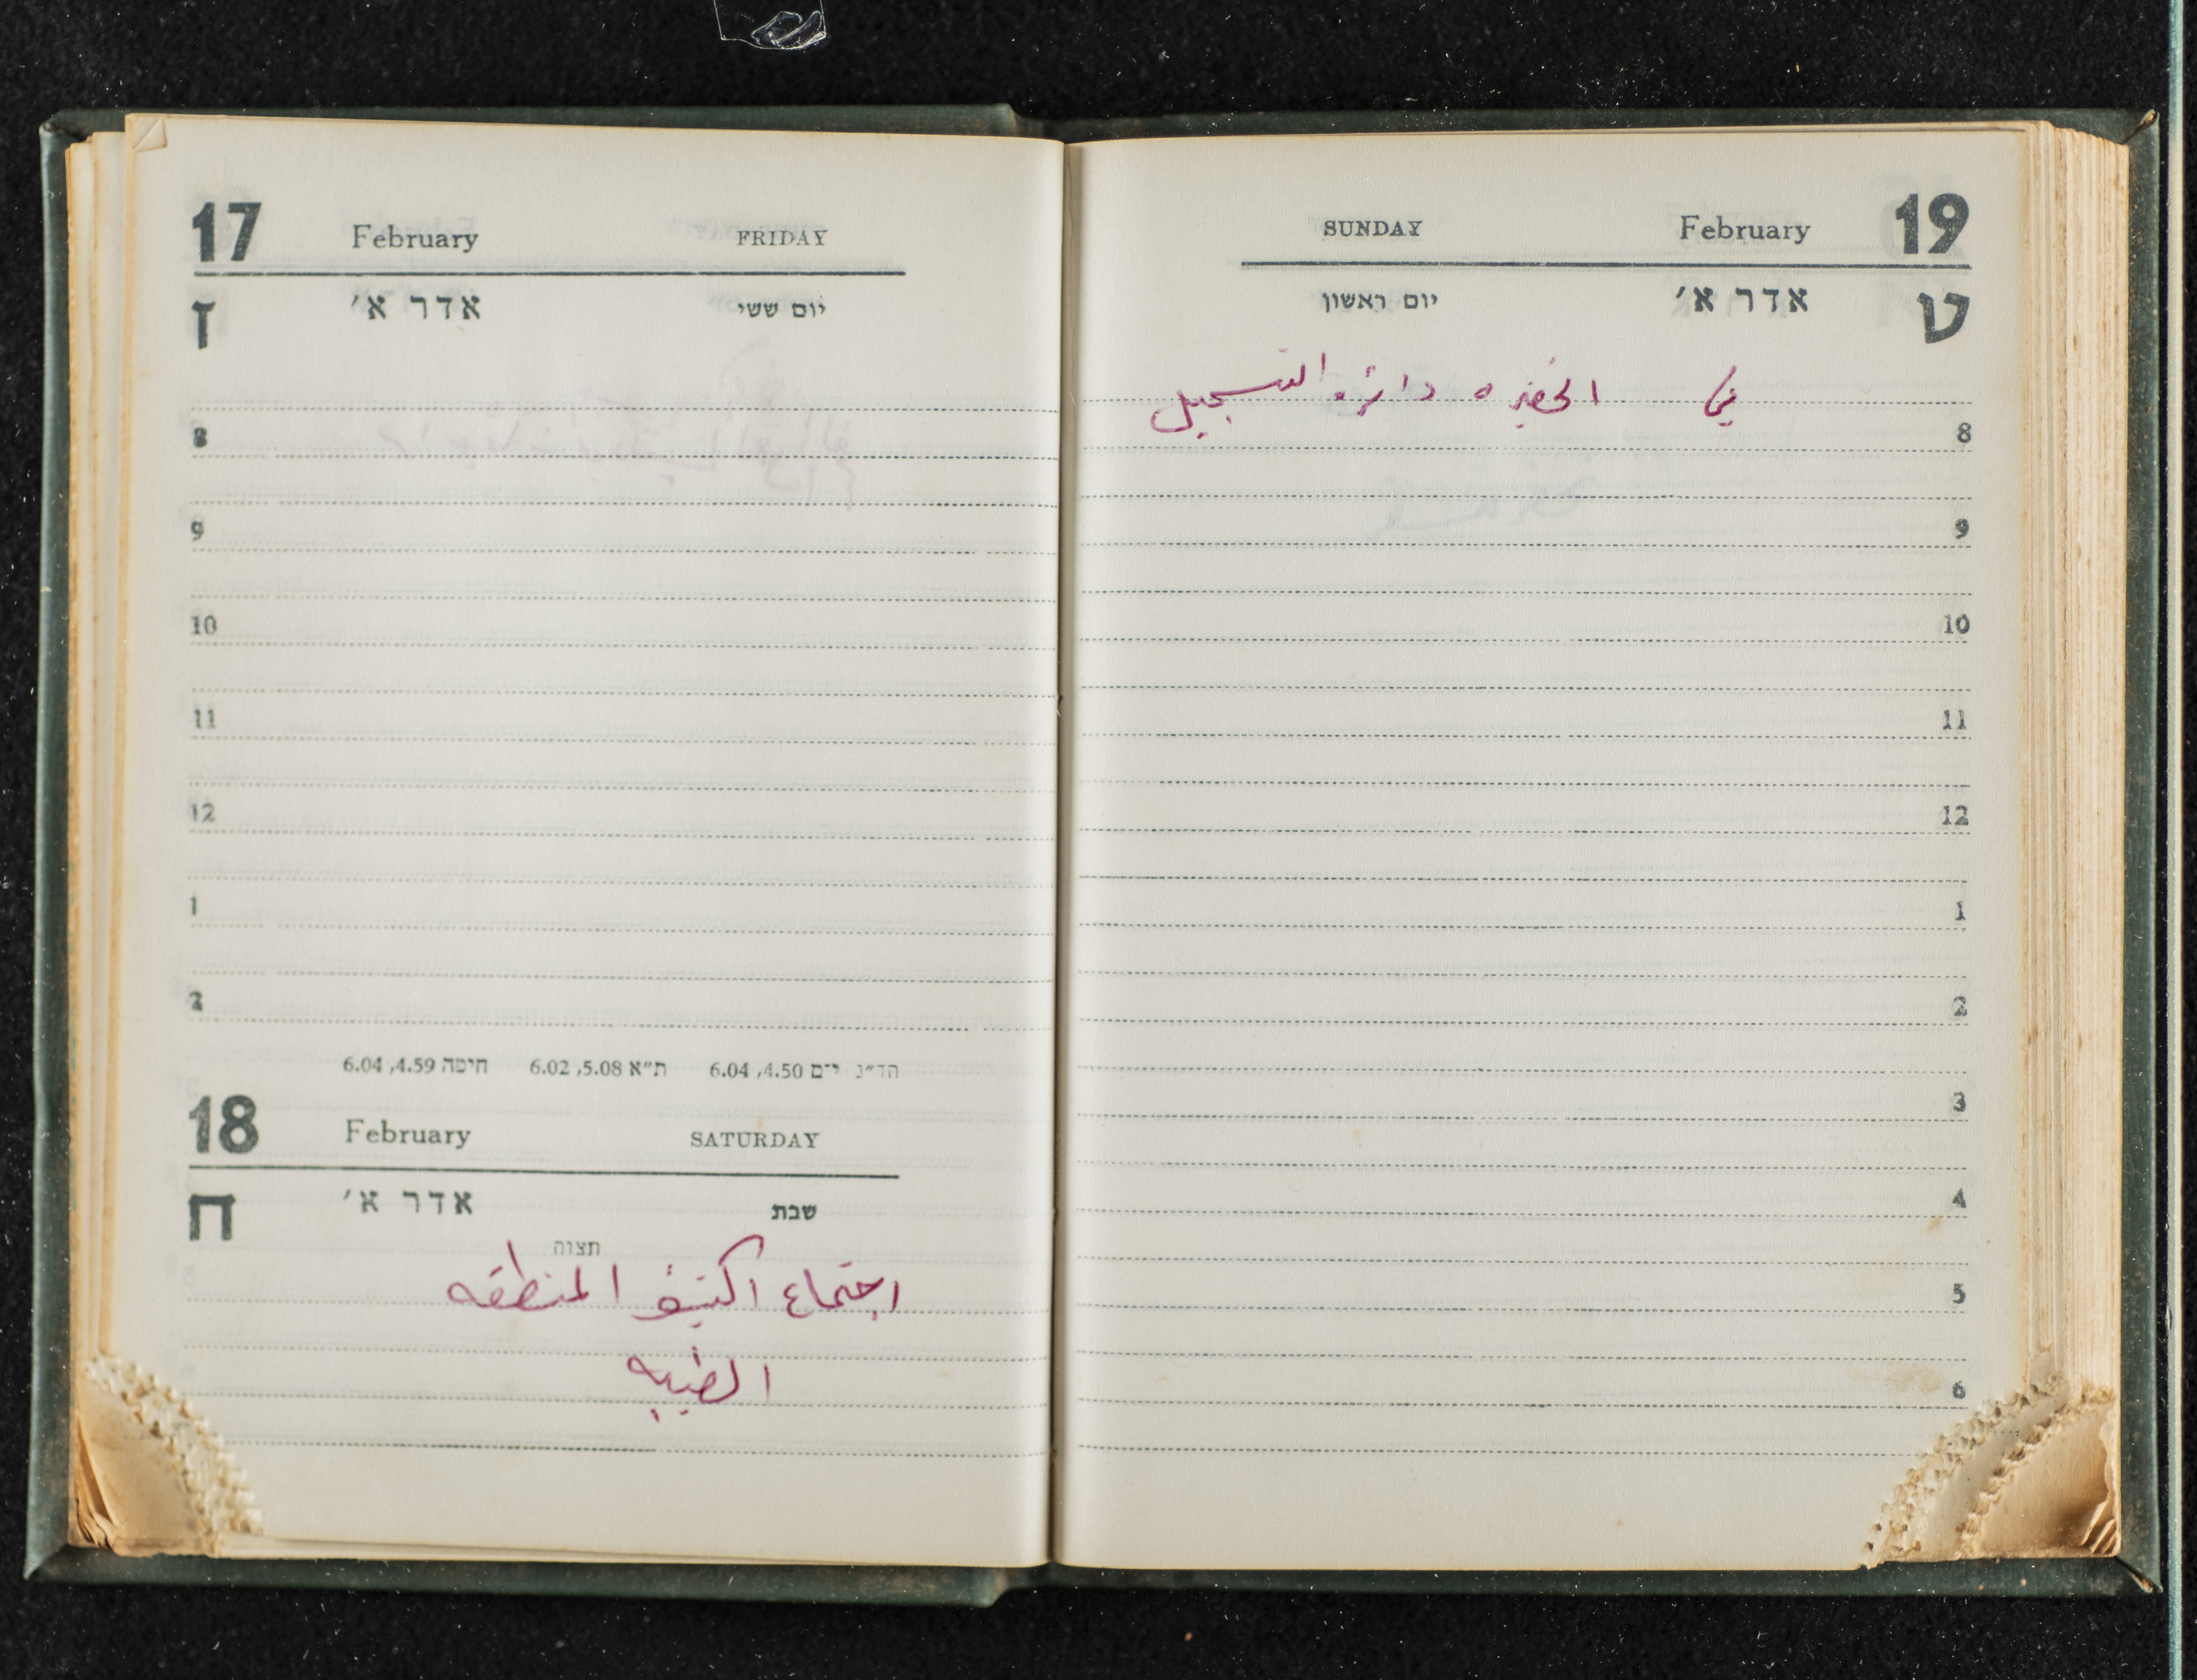 17 February FRIDAY
ז אדר א׳ יום ששי
8
9
10
11
12
1
2
הד״נ י־ם 4.50, 6.04 ת״א 5.08, 6.02 חיפה 4.59, 6.04
18 February SATURDAY
ח אדר א׳ שבת
תצוה
اجتماع اكتيف المنطقه
الطيبه
SUNDAY February 19
ט אדר א׳ יום ראשון
في الخضيره دائره التسجيل
8
9
10
11
12
1
2
3
4
5
6